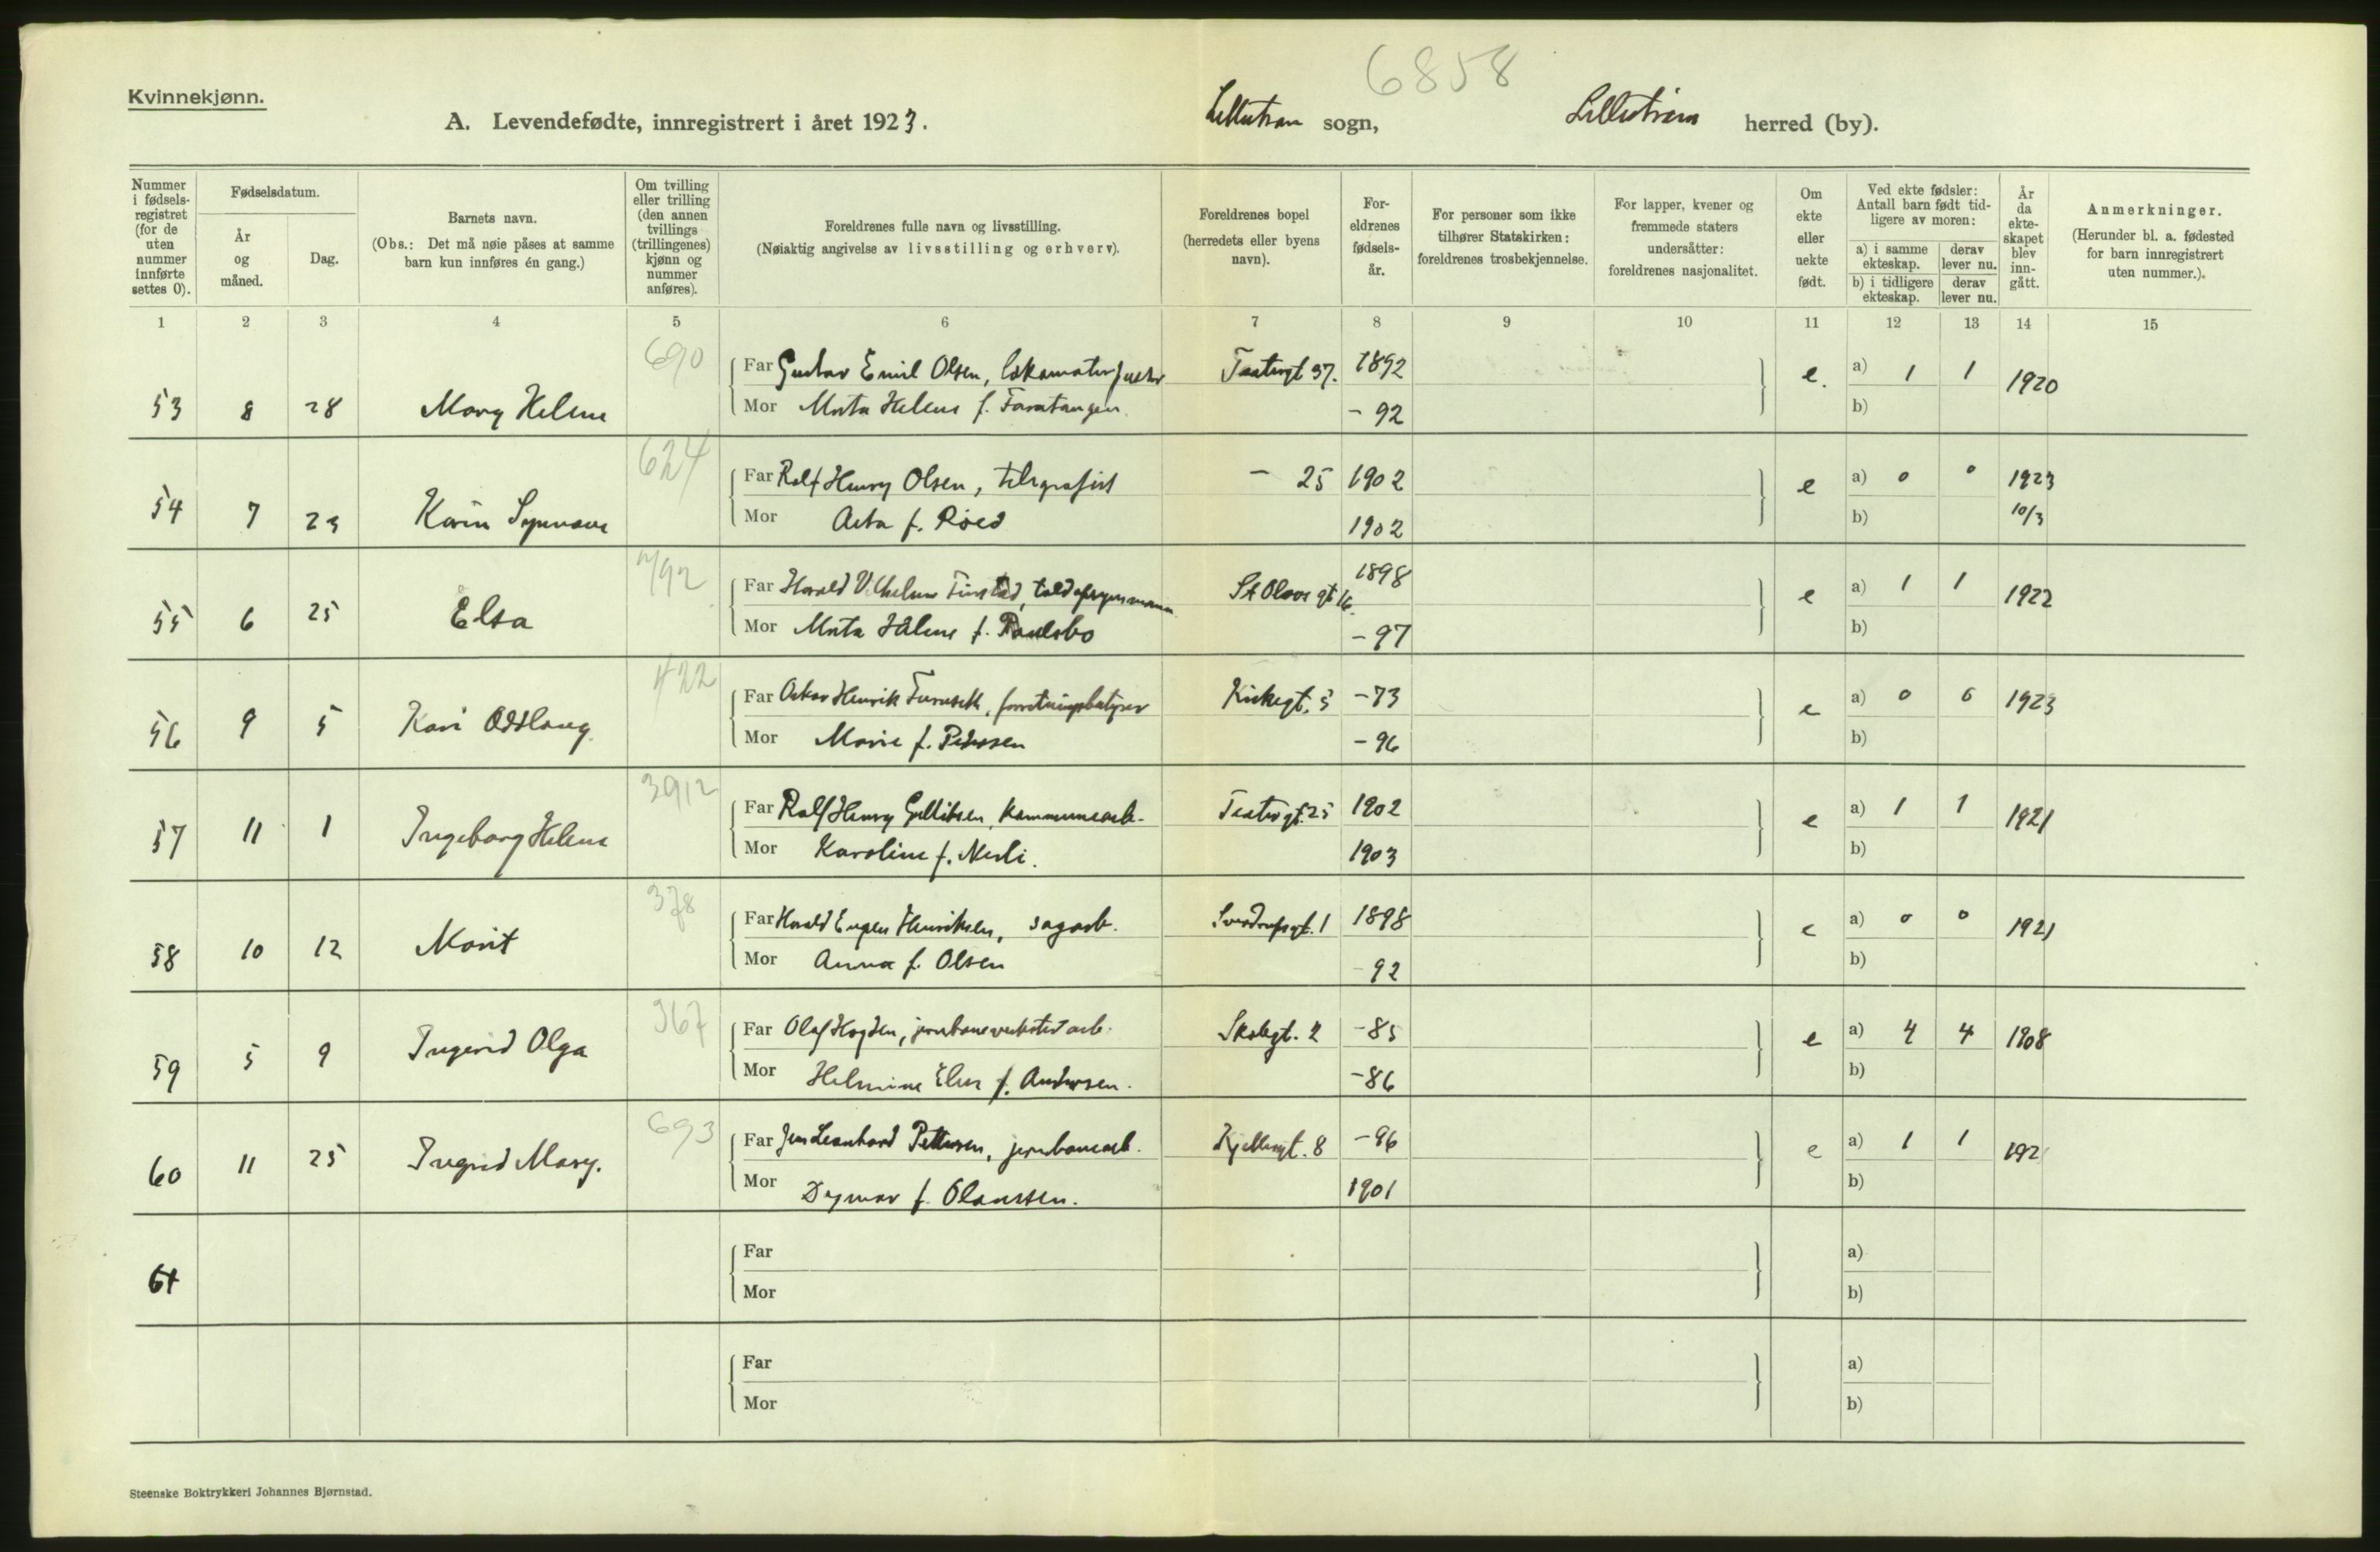 6858
Kvinnekjønn.
A. Levendefødte, innregistrert i året 1923. Lillestrøm sogn, Lillestrøm herred (by).
Nummer i fødsels-registret (for de uten nummer innførte settes 0).
Fødselsdatum.
År og måned.
Dag.
Barnets navn.
(Obs.: Det må nøie påses at samme barn kun innføres én gang.)
Om tvilling eller trilling (den annen tvillings (trillingenes) kjønn og nummer anføres).
Foreldrenes fulle navn og livsstilling.
(Nøiaktig angivelse av livsstilling og erhverv).
Foreldrenes bopel (herredets eller byens navn).
For-eldrenes fødsels-år.
For personer som ikke tilhører Statskirken: foreldrenes trosbekjennelse.
For lapper, kvener og fremmede staters undersåtter: foreldrenes nasjonalitet.
Om ekte eller uekte født.
Ved ekte fødsler: Antall barn født tid-ligere av moren:
a) i samme ekteskap.
derav lever nu.
b) i tidligere ekteskap.
derav lever nu.
År da ekte-skapet blev inn-gått.
Anmerkninger.
(Herunder bl. a. fødested for barn innregistrert uten nummer.).
1 2 3 4 5 6 7 8 9 10 11 12 13 14 15
690
Far Gustav Emil Olsen, Teatergt 37. 1892 e. a) 1 1 1920
53 8 28 Mary Helene Mor Marta Helene f. - 92 b)
624
Far Rolf Henry Olsen, telegrafist - 25 1902 e a) 0 0 1923
54 7 23 Karin Synnøve Mor Asta f. Røed 1902 b) 10/3
Far Harald Vilhelm Finstad, St Olavs gt 16. 1898 e a) 1 1 1922
55 6 25 Elsa Mor Marta f. Paulsbo - 97 b)
422
Far Oskar Henrik Furuseth, forretningsbestyrer Kirkegt. 5 - 73 e a) 0 0 1923
56 9 5 Kari Oddlaug Mor Marie f. Pedersen - 96 b)
3912
Far Rolf Henry Gulliksen, kommunearb. Teatergt. 25 1902 e a) 1 1 1921
57 11 1 Ingeborg Helene Mor Karoline f. Nesli. 1903 b)
378
Far Harald Eugen Henriksen, sagarb. Sverdrupsgt. 1 1898 e a) 0 0 1921
58 10 12 Marit Mor Anna f. Olsen - 92 b)
367
Far Olaf jernbaneverksted arb. Skolegt. 2 - 85 e a) 4 4 1908
59 5 9 Ingerid Olga Mor Helmine Elise f. Andersen. - 86 b)
693
Far Jens Leonhard Pettersen, jernbanearb. Kjellergt. 8 - 96 e a) 1 1 192
60 11 25 Ingrid Mary. Mor Dagmar f. Olaussen. 1901 b)
Far a)
61 Mor b)
Far a)
Mor b)
Steenske Boktrykkeri Johannes Bjørnstad.